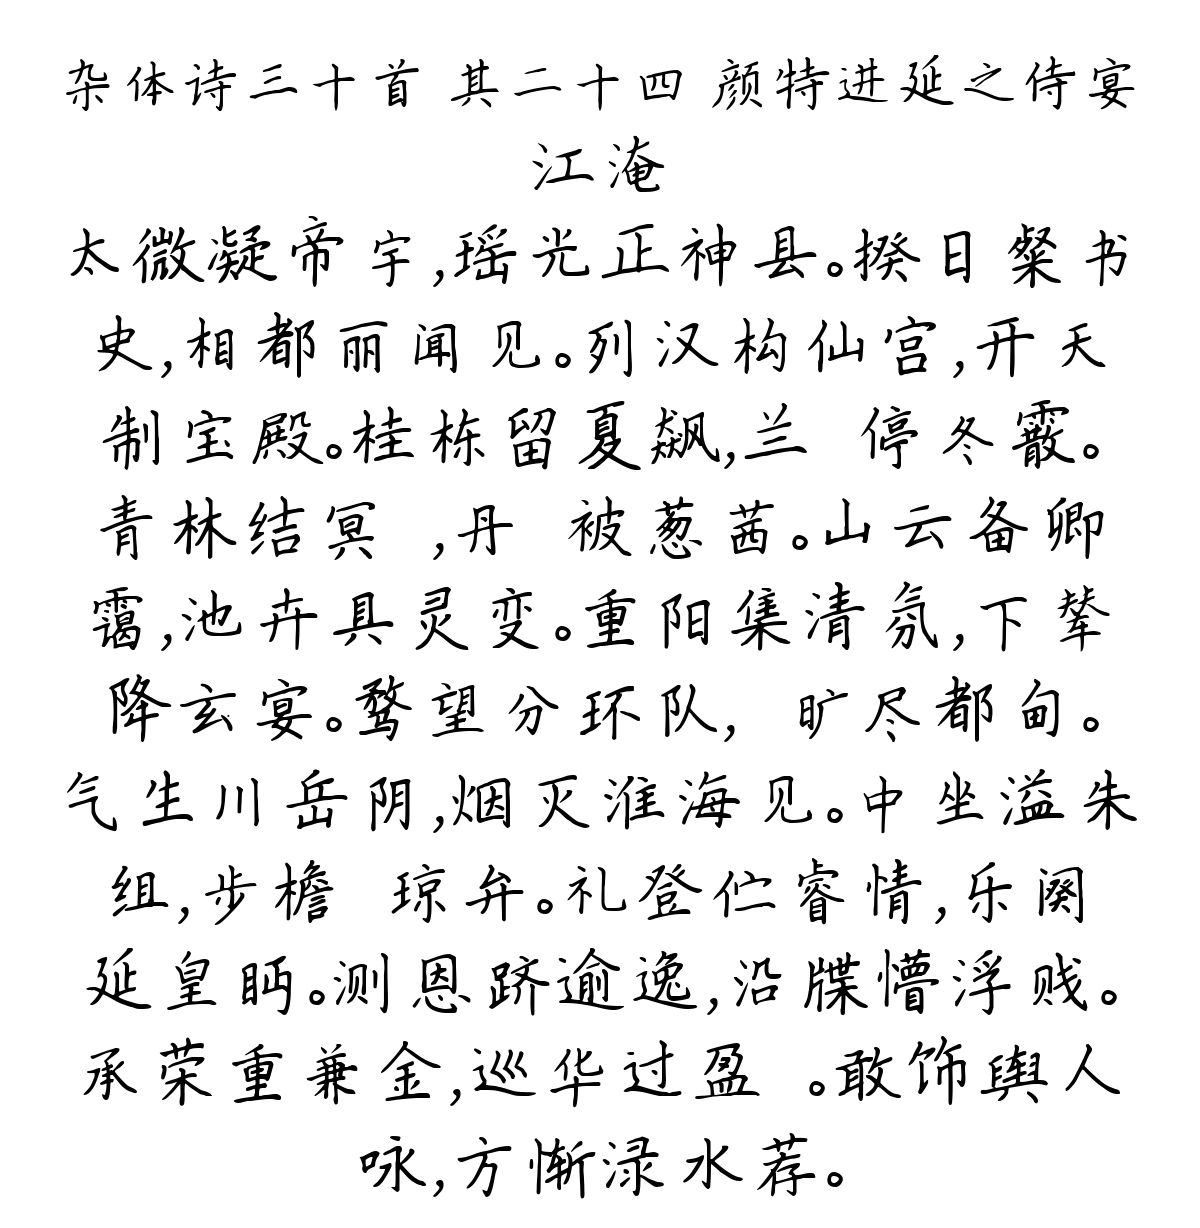 杂体诗三十首 其二十四 颜特进延之侍宴
江淹
太微凝帝宇,瑶光正神县。揆日粲书
史,相都丽闻见。列汉构仙宫,开天
制宝殿。桂栋留夏飙,兰 停冬霰。
青林结冥 ,丹 被葱茜。山云备卿
霭,池卉具灵变。重阳集清氛,下辇
降玄宴。鹜望分环队, 旷尽都甸。
气生川岳阴,烟灭淮海见。中坐溢朱
组,步檐 琼弁。礼登伫睿情,乐阕
延皇眄。测恩跻逾逸,沿牒懵浮贱。
承荣重兼金,巡华过盈 。敢饰舆人
咏,方惭渌水荐。